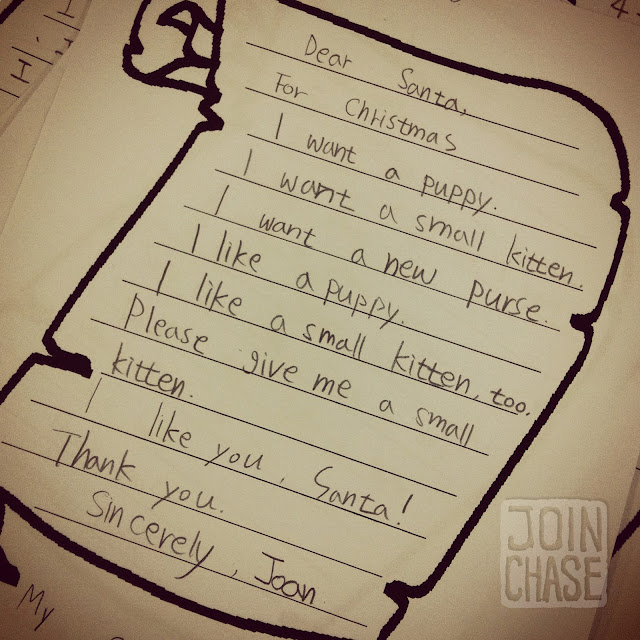 Dear Santa,
For Christmas
I want a puppy.
I want a small kitten.
I want a new purse.
I like a puppy.
I like a small kitten, too.
Please give me a small
kitten.
I like you, Santa!
Thank you.
Sincerely, Joan.
My
JOIN
CHASE